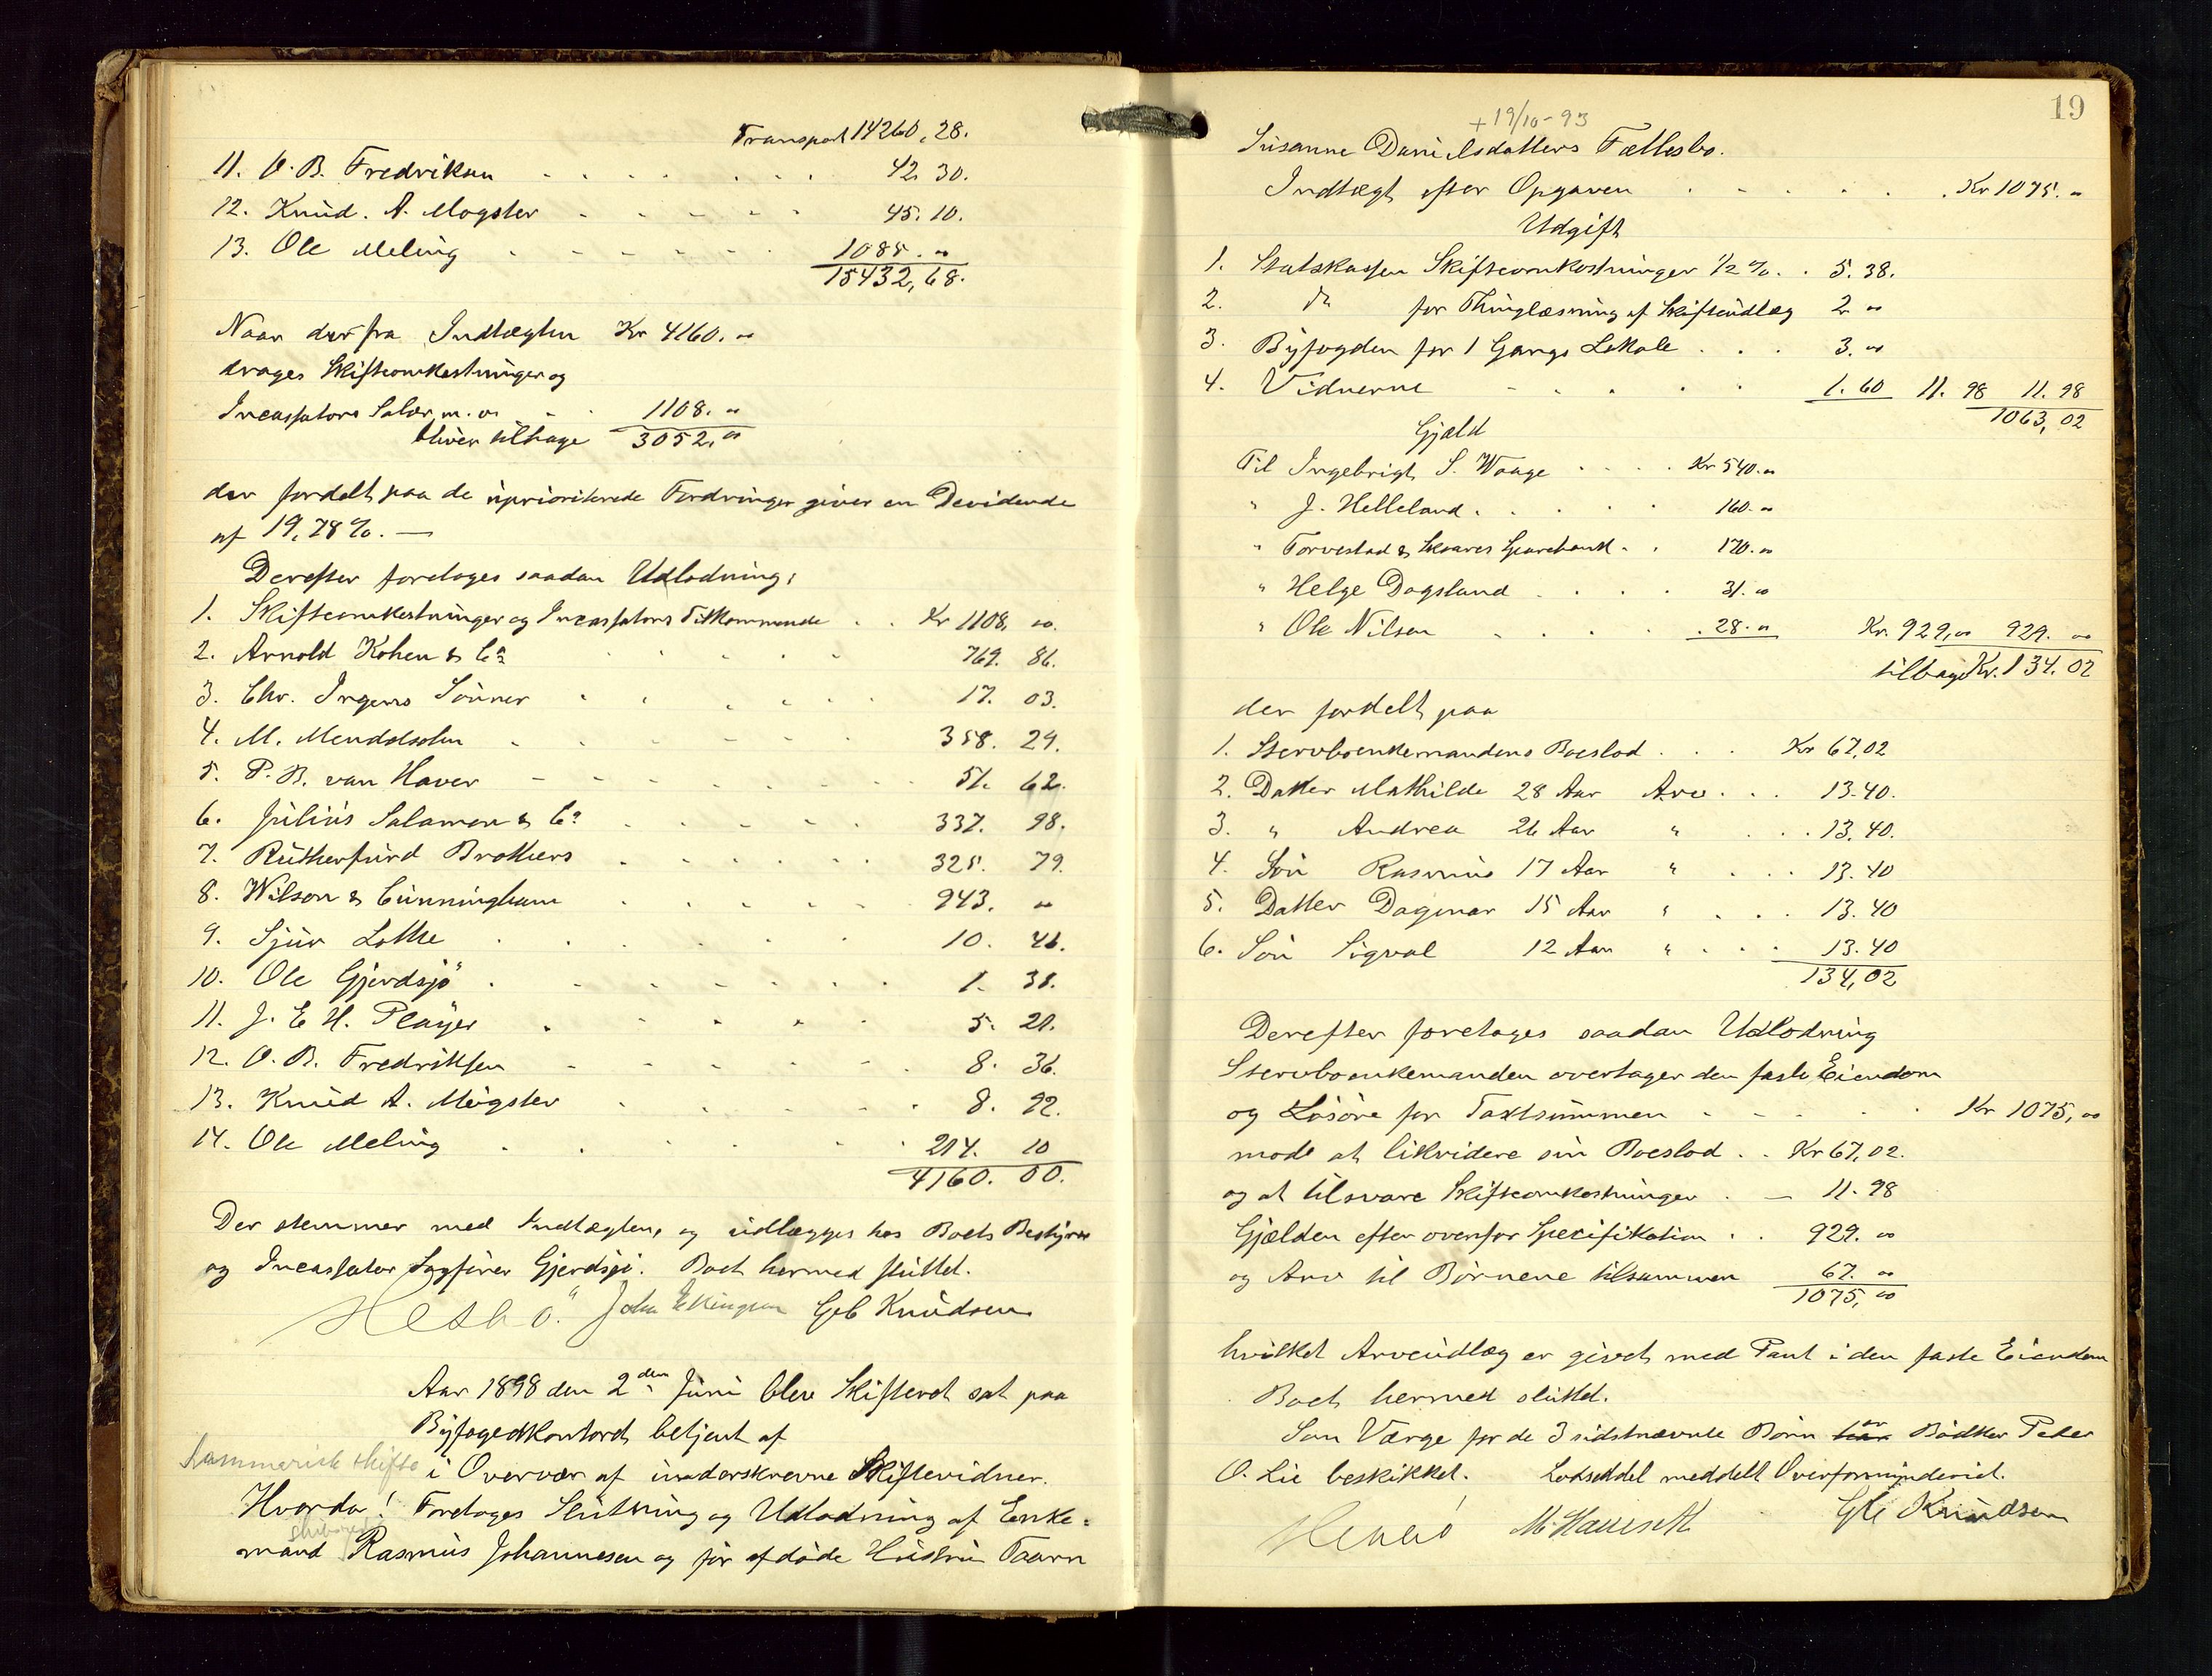 Transport 14260,28.
11. O. B. Fredriksen . . . . . . . 42. 30.
12. Knud. A. Mogster - - - - - 45. 10.
13. Ole Meling . - - - - - - 1085. "
15432,68.
Naar der fra Indtægten Kr 4160. "
drages Skifteomkostninger og
Incassators Salær m. v. - . 1108. "
bliver tilbage 3052. "
der fordelt paa de uprioriterede Fordringer giver en Devidende
af 19,78%. —
Derefter foretages saadan Udlodning:
1. Skifteomkostninger og Incassators Tilkommende . . Kr 1108. "
2. Arnold Kohen & Co . . . . . 769. 86.
3. Chr. Irgens Sönner . . . . . . 17. 03.
4. M. Mendelsohn . - - - - - . 358. 29.
5. P. B. van Haver - - - - - - . . 51. 62.
6. Julius Salomon & Co . . . . . 337. 98.
7. Rutherfurd Brothers . . . . . . 325. 79.
8. Wilson & Cunningham . . . . . 943. "
9. Sjur Lothe . . . . . . 10. 46.
10. Ole Gjerdsjö . . . . . . . 1. 38.
11. J. E H. Player . . . . . 5. 21.
12. O. B. Fredriksen - - - - - . 8. 36.
13. Knud A. Mögster . . . . . . 8. 92.
14. Ole Meling . . . . . 214. 10
4160. 00.
Der stemmer med Indtægten, og udlægges hos Boets Bestyrer
og Incassator Sagförer Gjerdsjö. Boet hermed sluttet.
Hesbö. John Ellingsen Geb Knudsen
Aar 1898 den 2den Juni blev Skifteret sat paa
Byfogedkontoret betjent af
Summarisk skifte i Overvær af underskrevne Skiftevidner.
Hvorda! Foretoges Slutning og Udlodning af Enke=
mand Rasmus Johannesen og för afdöde Hustru Taarn
19
+ 19/10-93
Susanne Danielsdatters Fællesbo.
Indtægt efter Opgaven . - - . . . Kr 1075. "
Udgift
1. Statskassen Skifteomkostninger 1/2 %. . 5. 38.
2. do for Thinglæsning af Skifteudlæg 2. "
3. Byfogden for 1 Gangs Lokale . . . 3. "
4. Vidnerne - . . . . 1. 60 11. 98 11. 98
1063, 02
Gjæld
Til Ingebrigt S. Waage . . . . Kr 540. "
" J. Helleland . . . . . 160. "
" Torvestad & Skaares Sparebank . . 170. "
" Helge Dagsland . . . . 31. "
" Ole Nilsen - . . . . 28. " Kr. 929, " 929. "
tilbage Kr. 134. 02
der fordelt paa
1. Stervboenkemandens Boeslod . . . Kr 67,02
2. Datter Mathilde 28 Aar Arv . . . 13. 40.
3. " Andrea 26 Aar " . . . 13. 40.
4. Sön Rasmus 17 Aar " . . . 13. 40
5. Datter Dagmar 15 Aar " . . . 13. 40
6. Sön Sigval 12 Aar " . . . 13. 40
134,02
Derefter foretages saadan Udlodning
Stervboenkemanden overtager den faste Eiendom
og Lösöre for Taxtsummen - - - - . . Kr 1075, "
mod at likvidere sin Boeslod . . Kr 67,02.
og at tilsvare Skifteomkostninger . — 11. 98
Gjælden efter ovenfor Specifikation . . 929. "
og Arv til Börnene tilsammen 67. "
1075, "
hvilket Arveudlæg er givet med Pant i den faste Eiendom
Boet hermed sluttet.
Som Værge for de 3 sidstnævnte Börn er Bödker Peder
O. Lie beskikket. Lodseddel meddelt Overformynderiet.
Hesbö Geb Knudsen